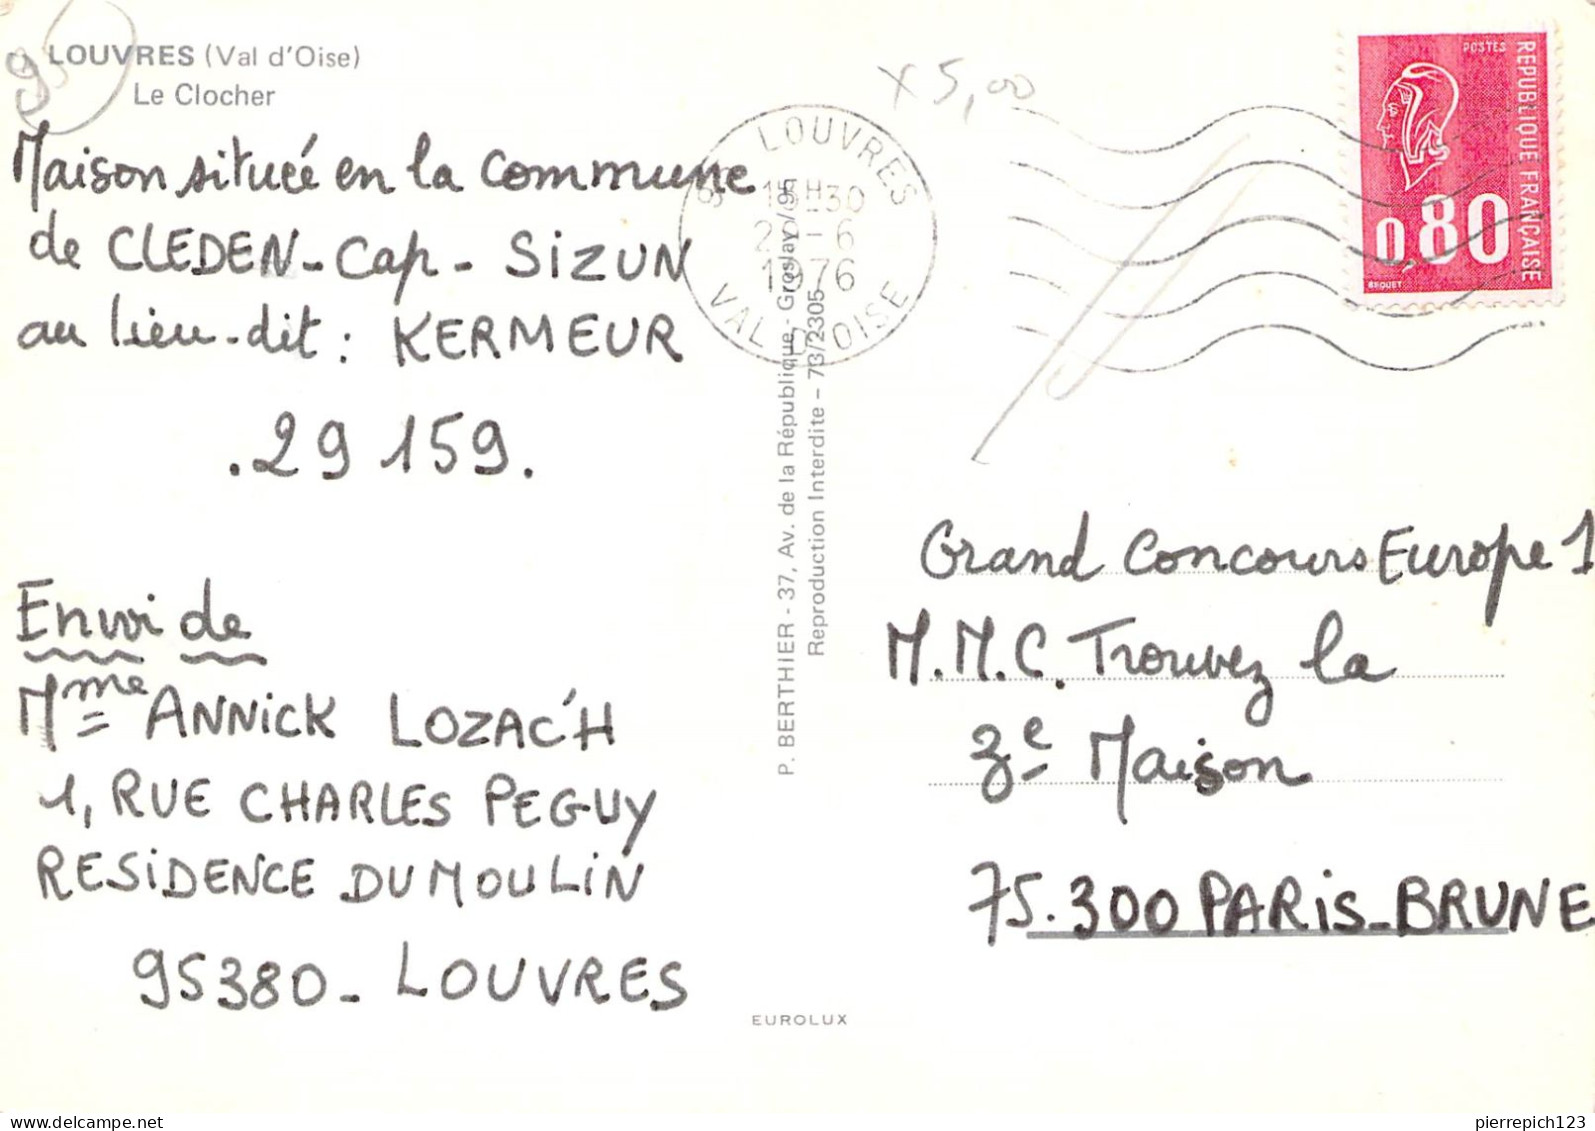 95
LOUVRES (Val d'Oise)
Le Clocher
Maison située en la commune
de CLEDEN-Cap-SIZUN
au lieu-dit : KERMEUR
.29 159.
Envoi de
Mme ANNICK LOZAC'H
1, RUE CHARLES PEGUY
RESIDENCE DU MOULIN
95380-LOUVRES
P. BERTHIER - 37, Av. de la République - Groslay /95
Reproduction Interdite - 73/2305
EUROLUX
x 5,00
LOUVRES
-6
1976
VAL D'OISE
POSTES
REPUBLIQUE FRANÇAISE
0,80
BEQUET
Grand Concours Europe 1
M.M.C. Trouvez la
3e Maison
75.300 PARIS-BRUNE
pierrepich123